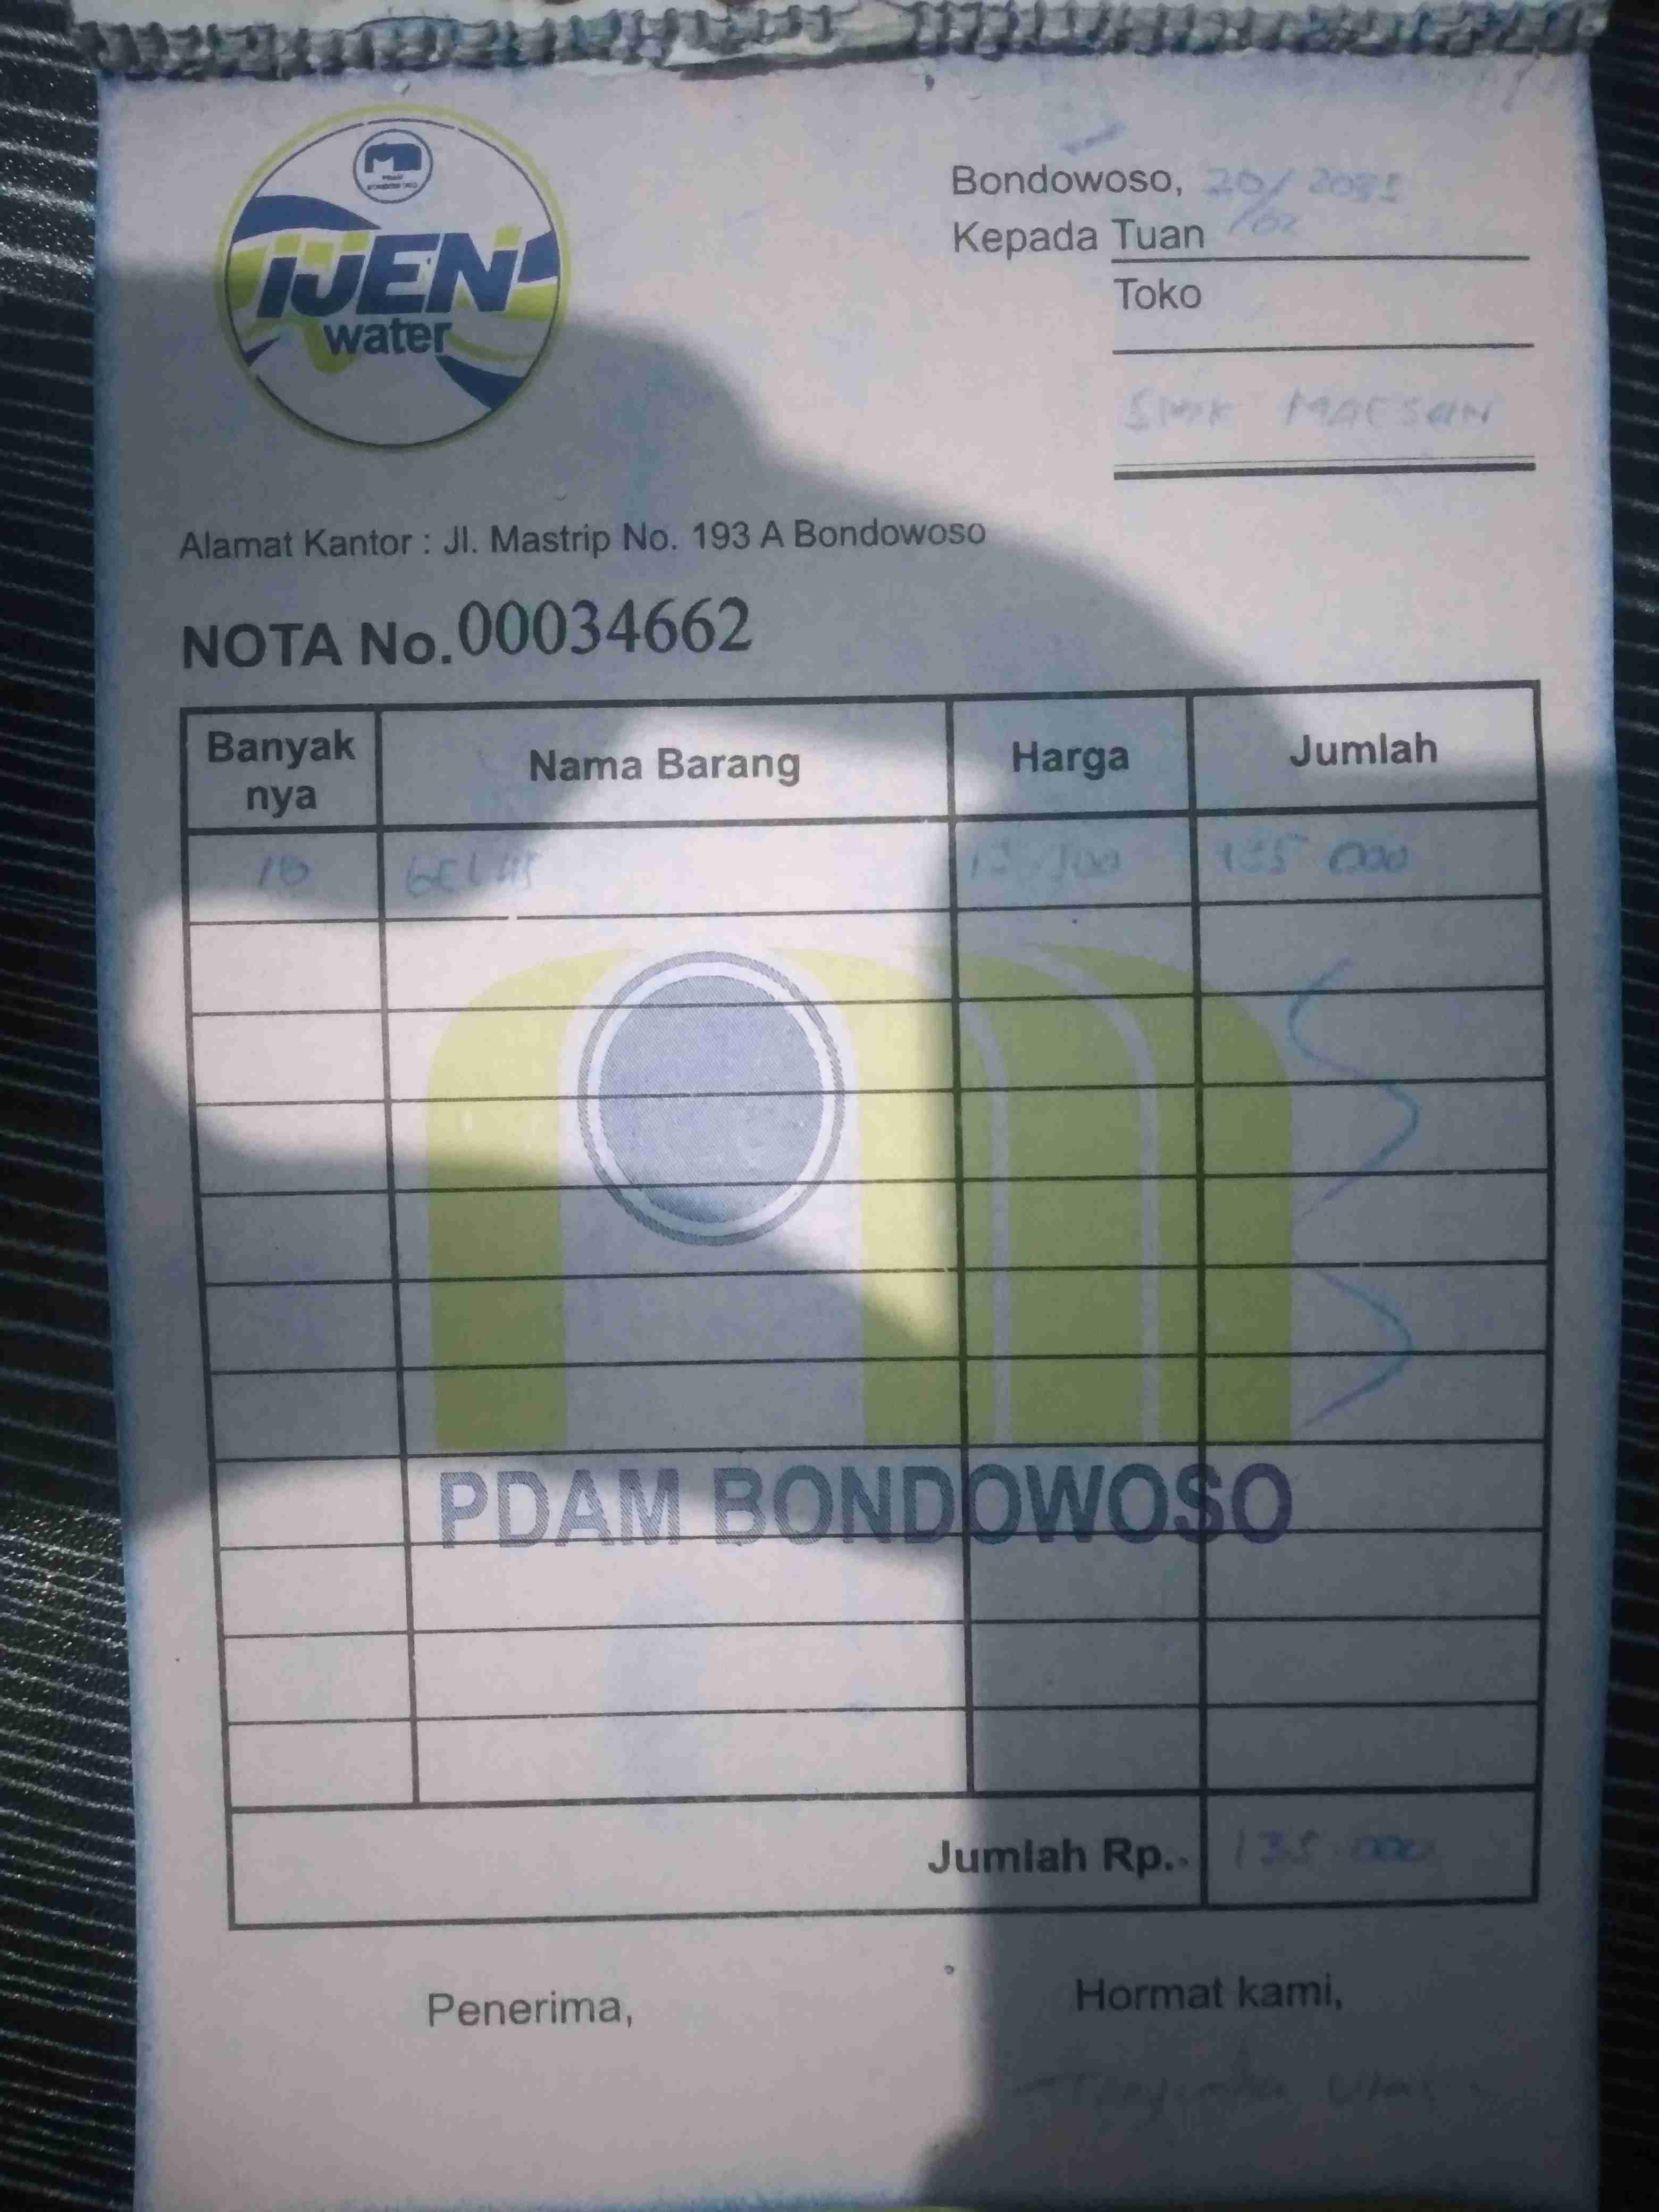 PDAM
BONDOWOSO
IJEN
water
Bondowoso, 20/02/2025
Kepada Tuan
Toko
SMK MAESAN
Alamat Kantor : Jl. Mastrip No. 193 A Bondowoso
NOTA No. 00034662
Banyak nya Nama Barang Harga Jumlah
10 GELAS 13.500 135 000
PDAM BONDOWOSO
Jumlah Rp. 135.000
Penerima, Hormat kami,